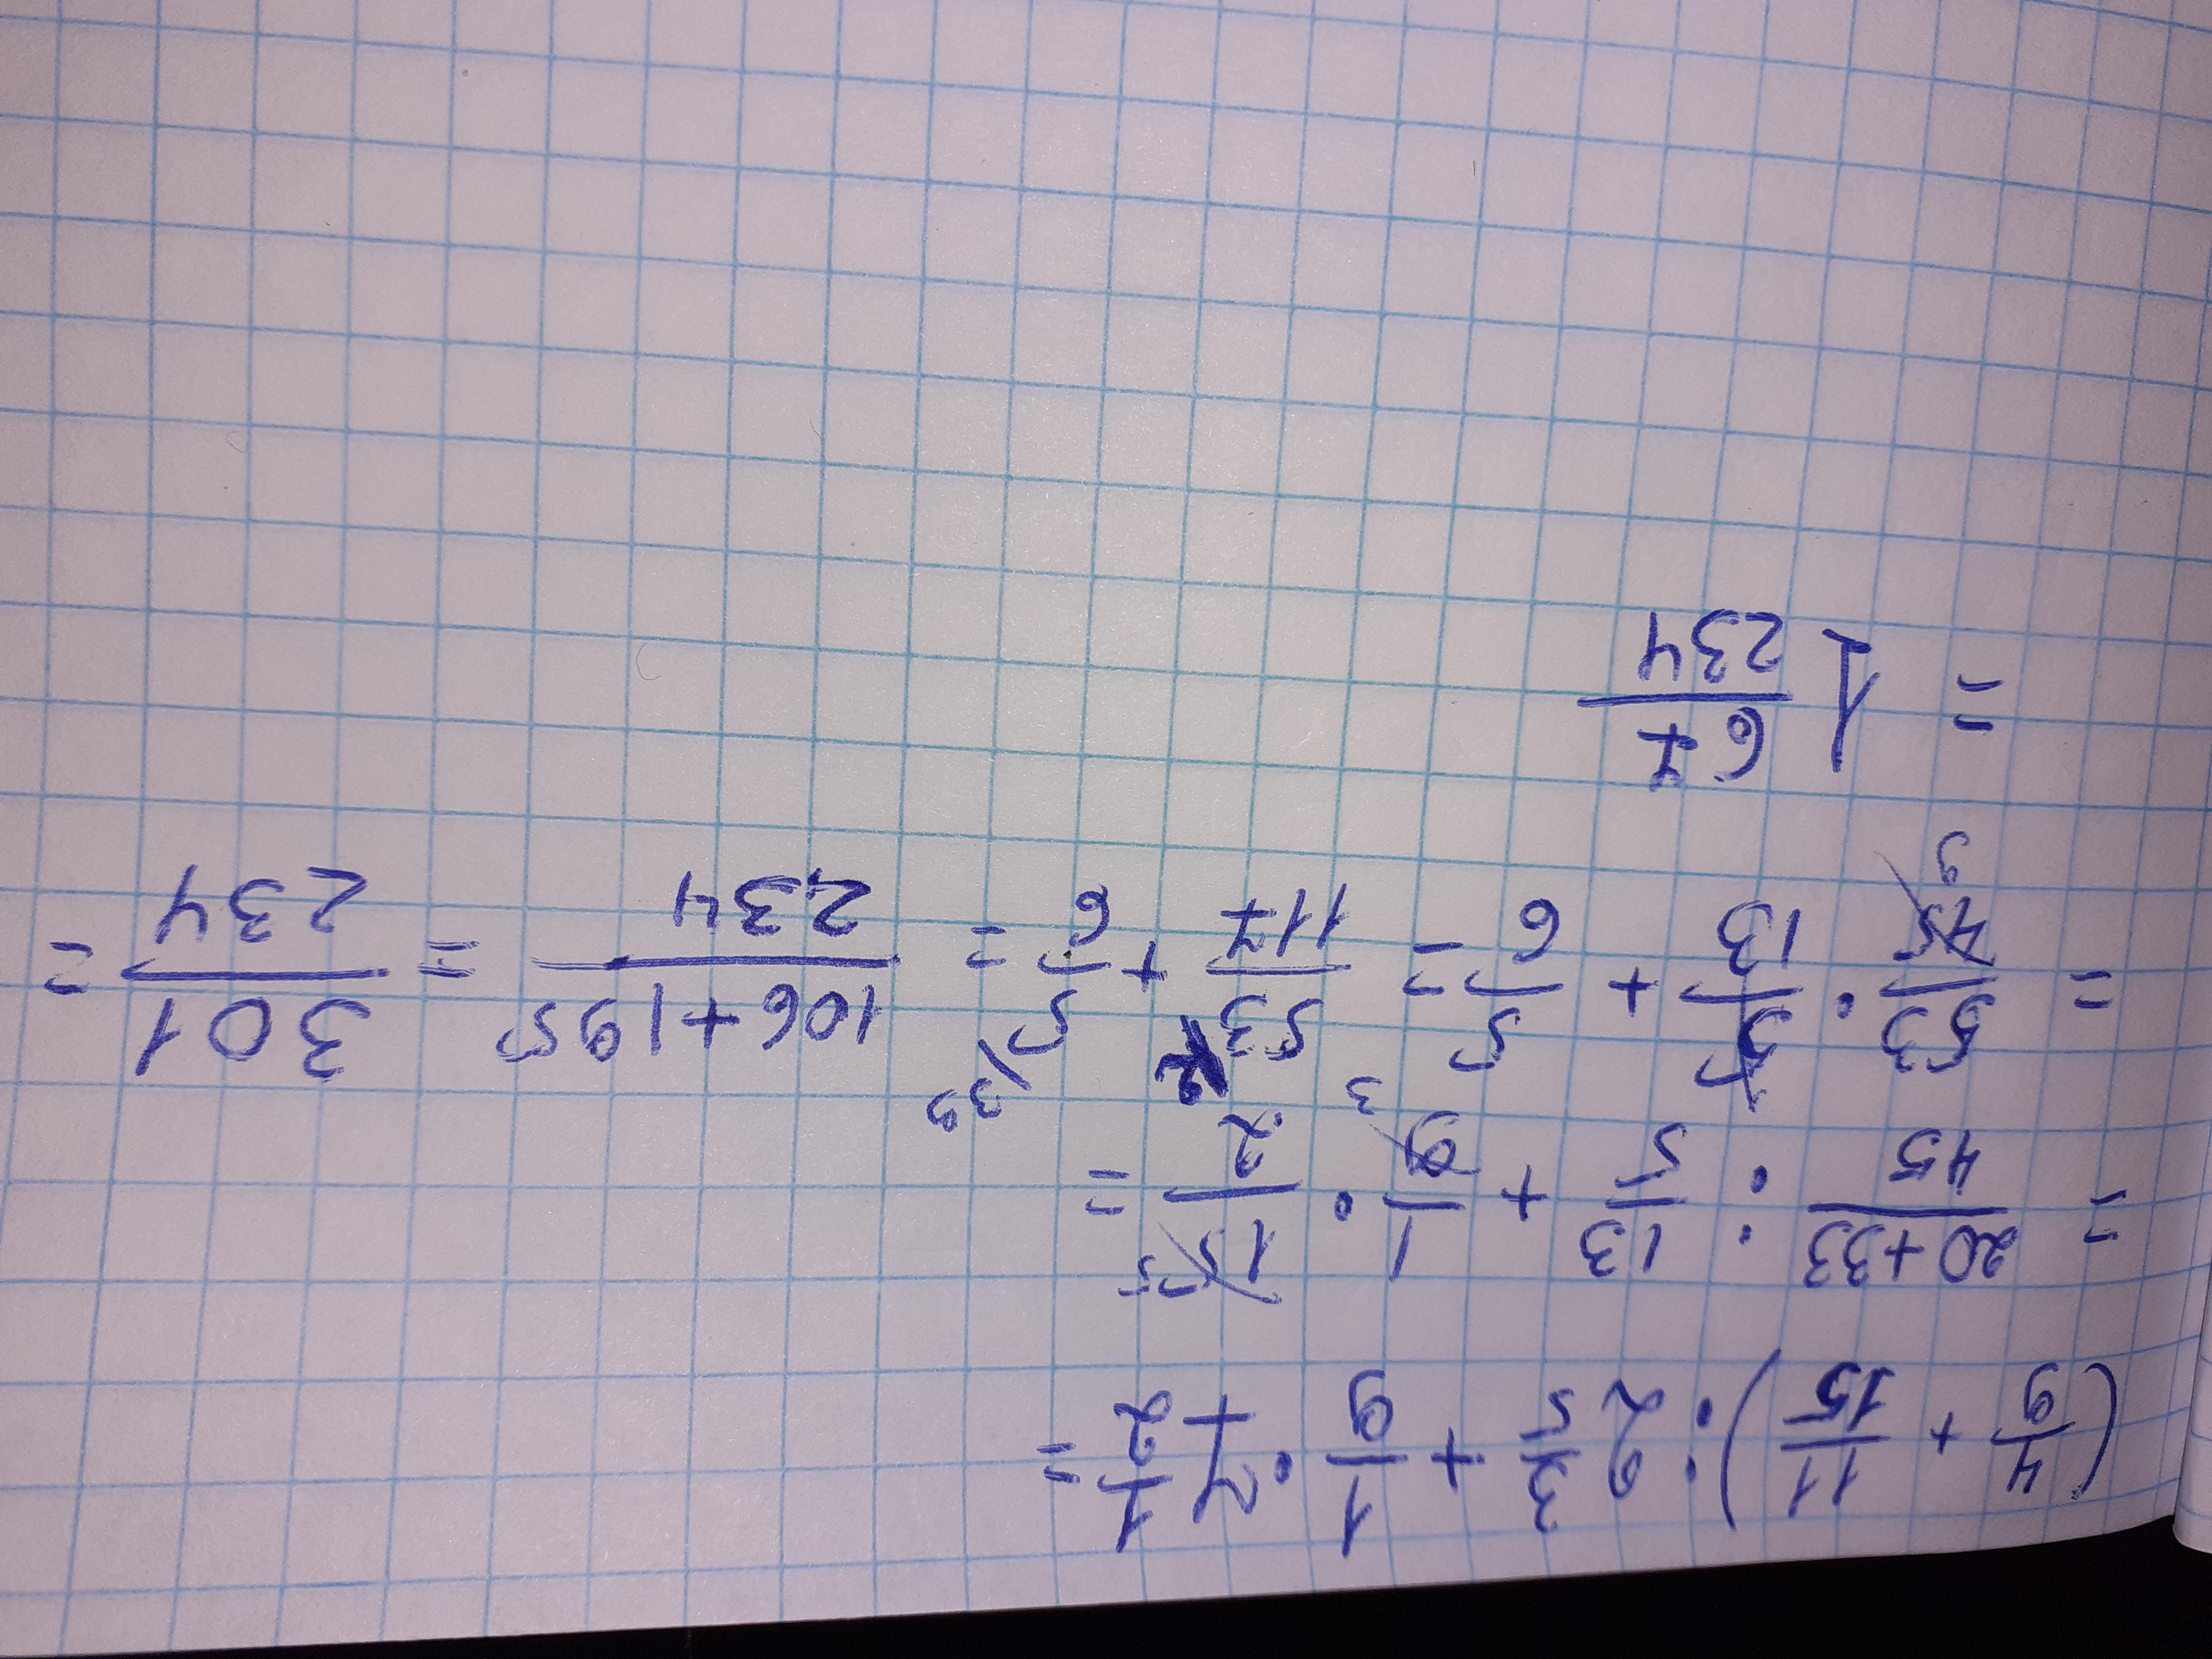 (4/9 + 11/15) : 2 3/5 + 1/9 · 7 1/2 =
= 20+33/45 : 13/5 + 1/9 3 · 15 5/2 =
= 53/45 9 · 5/13 + 5/6 = 53/117 2 + 5/6 39 = 106+195/234 = 301/234 =
= 1 67/234